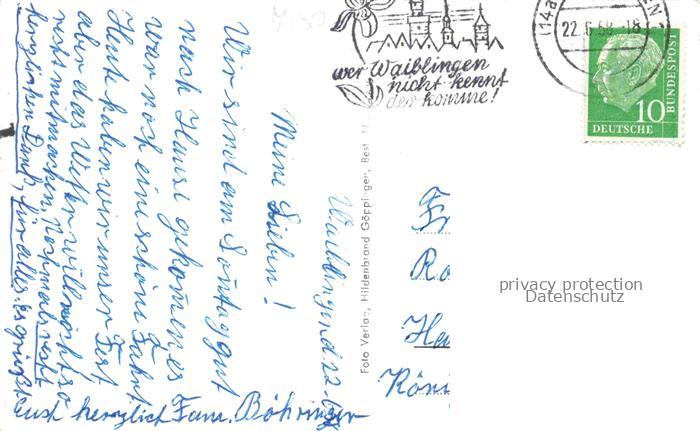 Waiblingen d 22.6.58
Meine Lieben!
Wir sind am Sonntag gut
nach Hause gekommen es
war noch eine schöne Fahrt
Heute haben wir unser Fest
aber das Wetter will nicht so
recht mitmachen. Nochmals recht
herzlichen Dank, für alles. es grüßt
Euch herzlich Fam. Böhringer
Foto Verlag, Hildenbrand Göppingen, Best. N
wer Waiblingen
nicht kennt
der komme!
(14a)
EN
22.6.58-18
10
DEUTSCHE
BUNDESPOST
Fr
Ro
He
Köni
privacy protection
Datenschutz